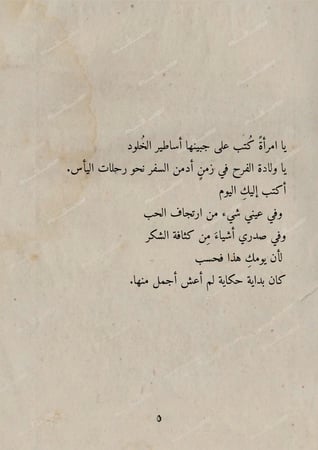 يا امرأةً كُتب على جبينها أساطير الخُلود
يا ولادة الفرح في زمنٍ أدمن السفر نحو رحلات اليأس.
أكتب إليكِ اليوم
وفي عيني شيء من ارتجاف الحب
وفي صدري أشياءَ مِن كثافة الشكر
لأن يومكِ هذا فحسب
كان بداية حكاية لم أعش أجمل منها.
٥